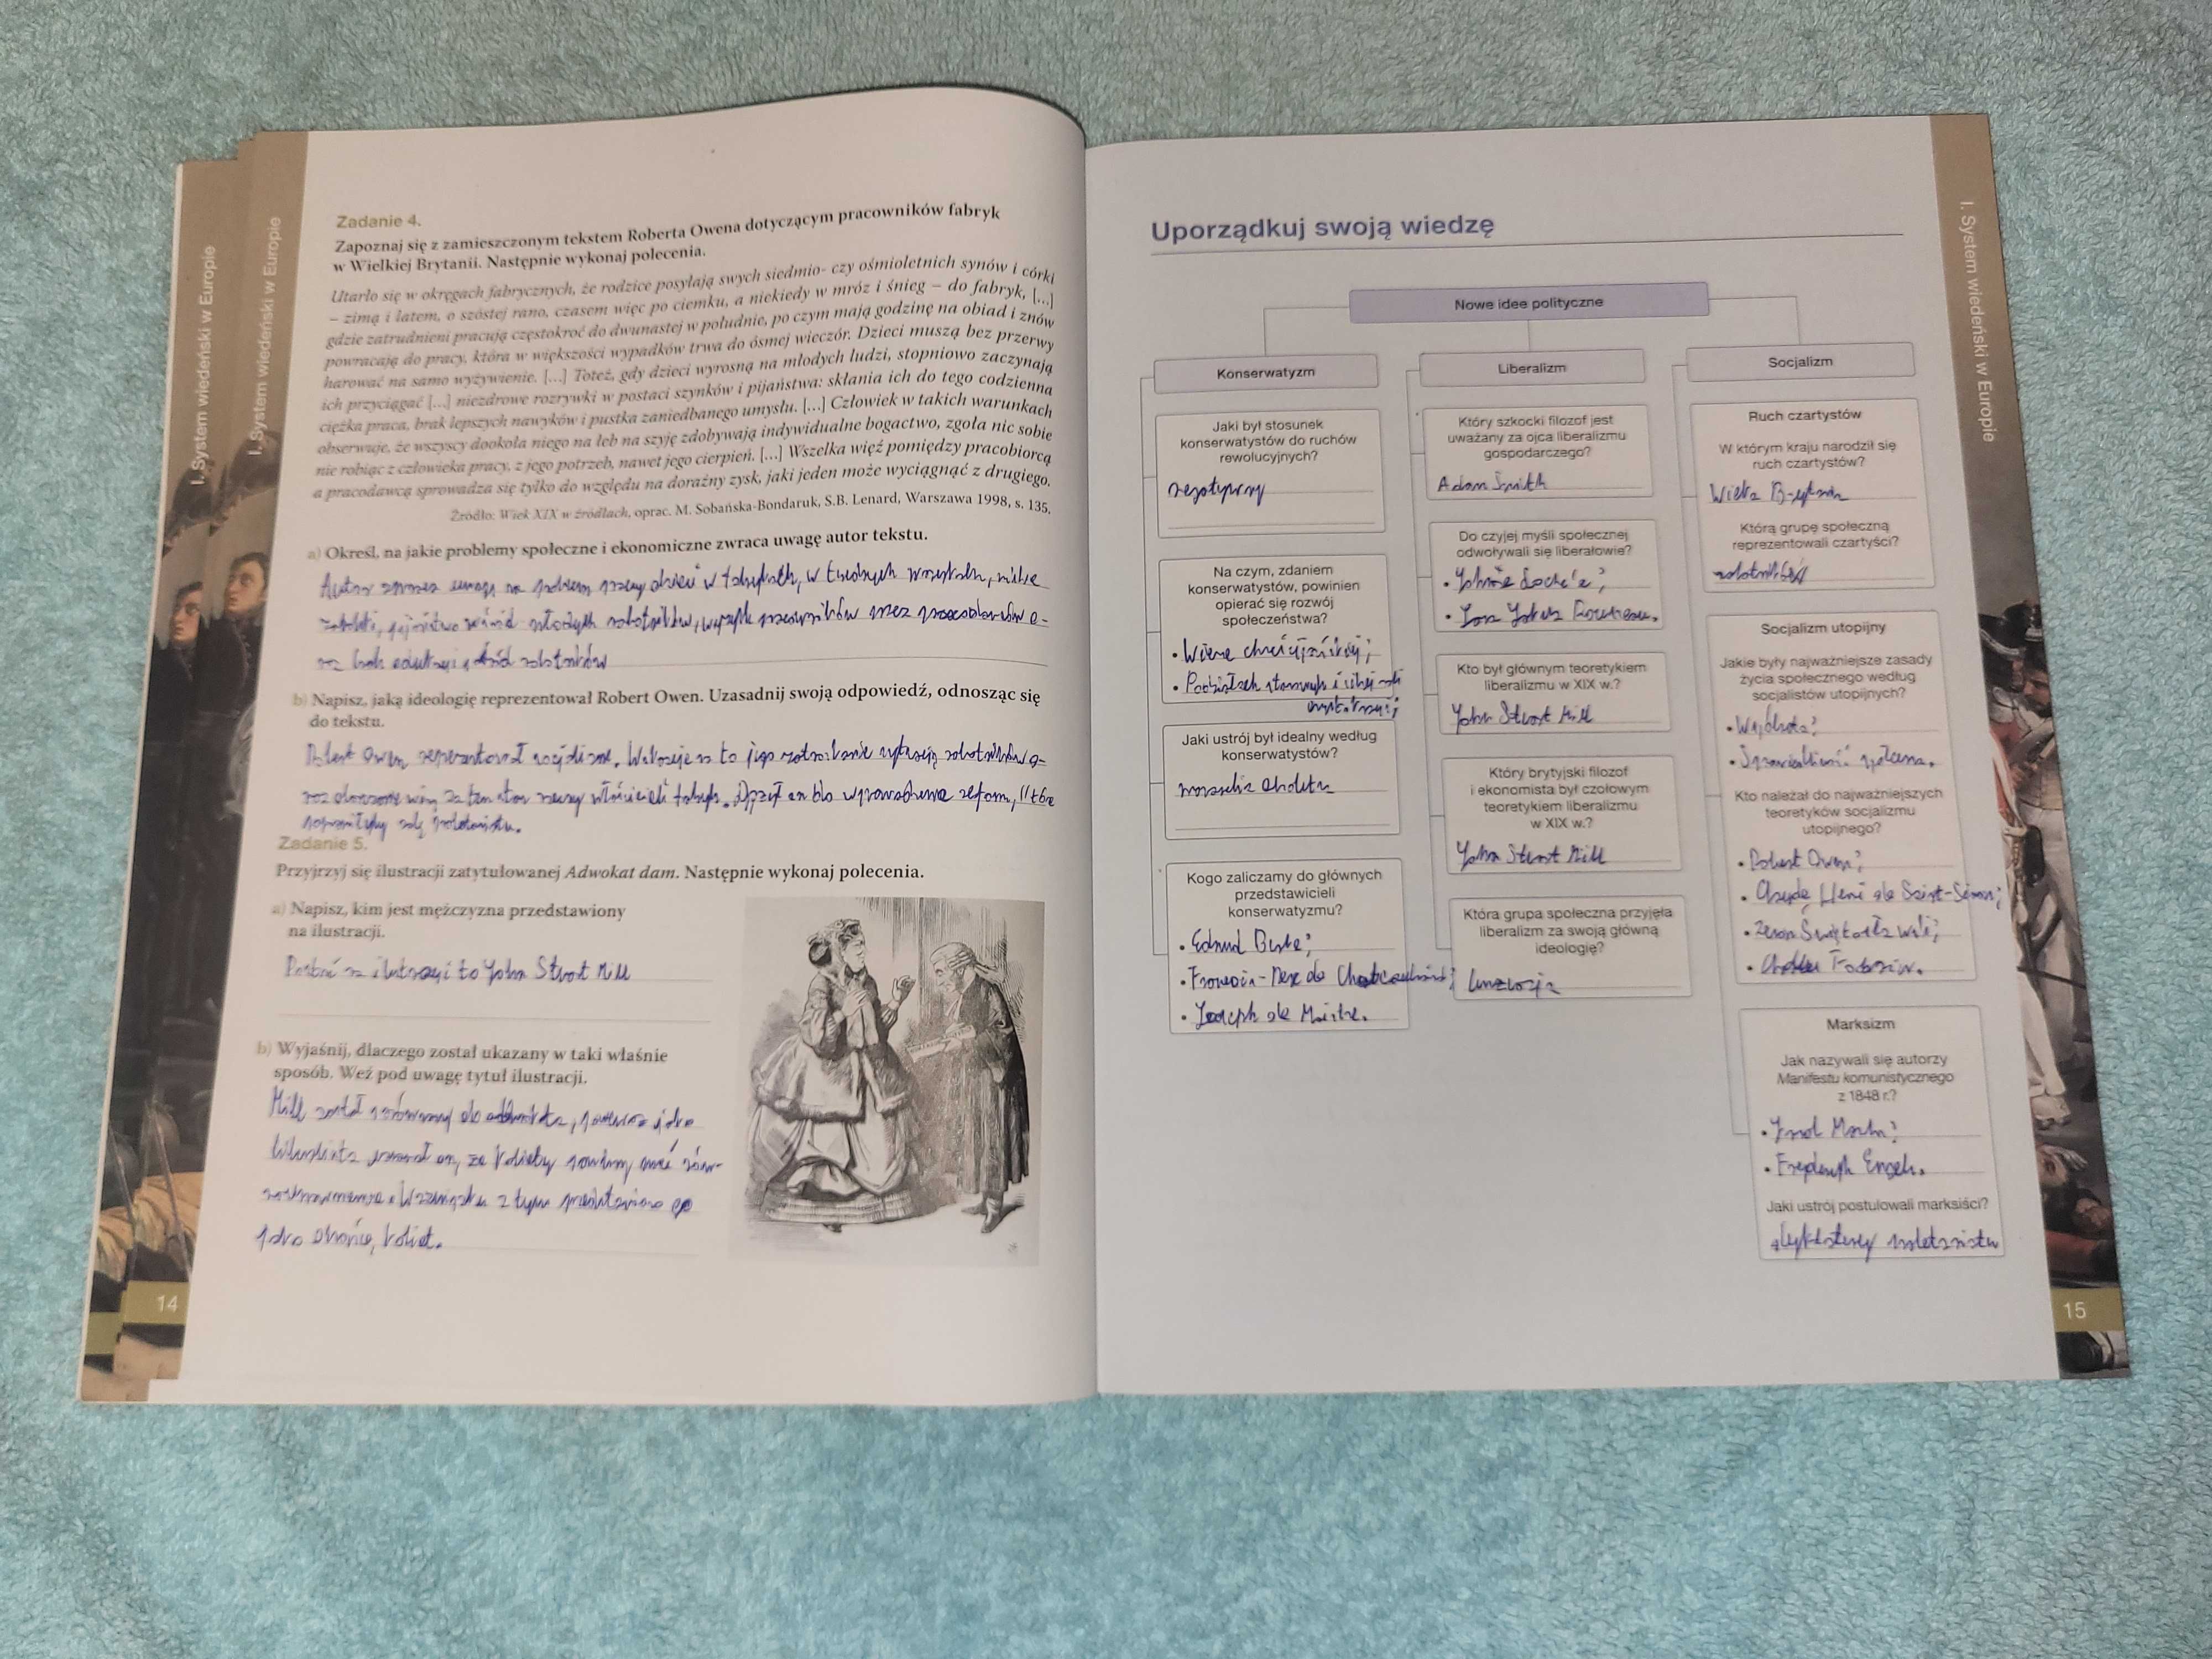 I. System wiedeński w Europie
I. System wiedeński w Europie
Zadanie 4.
Zapoznaj się z zamieszczonym tekstem Roberta Owena dotyczącym pracowników fabryk
w Wielkiej Brytanii. Następnie wykonaj polecenia.
Utarło się w okręgach fabrycznych, że rodzice posyłają swych siedmio- czy ośmioletnich synów i córki
– zimą i latem, o szóstej rano, czasem więc po ciemku, a niekiedy w mróz i śnieg – do fabryk, [...]
gdzie zatrudnieni pracują częstokroć do dwunastej w południe, po czym mają godzinę na obiad i znów
powracają do pracy, która w większości wypadków trwa do ósmej wieczór. Dzieci muszą bez przerwy
harować na samo wyżywienie. [...] Toteż, gdy dzieci wyrosną na młodych ludzi, stopniowo zaczynają
ich przyciągać [...] niezdrowe rozrywki w postaci szynków i pijaństwa: skłania ich do tego codzienna
ciężka praca, brak lepszych nawyków i pustka zaniedbanego umysłu. [...] Człowiek w takich warunkach
obserwuje, że wszyscy dookoła niego na łeb na szyję zdobywają indywidualne bogactwo, zgoła nic sobie
nie robiąc z człowieka pracy, z jego potrzeb, nawet jego cierpień. [...] Wszelka więź pomiędzy pracobiorcą
a pracodawcą sprowadza się tylko do względu na doraźny zysk, jaki jeden może wyciągnąć z drugiego.
Źródło: Wiek XIX w źródłach, oprac. M. Sobańska-Bondaruk, S.B. Lenard, Warszawa 1998, s. 135.
a) Określ, na jakie problemy społeczne i ekonomiczne zwraca uwagę autor tekstu.
Autor zwraca uwagę na problem pracy dzieci w fabrykach, w trudnych warunkach, niskie
zarobki, pijaństwo wśród młodych robotników, wyzysk pracowników przez pracodawców o-
raz brak edukacji wśród robotników
b) Napisz, jaką ideologię reprezentował Robert Owen. Uzasadnij swoją odpowiedź, odnosząc się
do tekstu.
Robert Owen reprezentował socjalizm. Wskazuje na to jego sytuacją robotników o-
raz obarczenie winą za ten stan rzeczy właścicieli fabryk. on do wprowadzenia reform, które
poprawiłyby rolę proletariatu.
Zadanie 5.
Przyjrzyj się ilustracji zatytułowanej Adwokat dam. Następnie wykonaj polecenia.
a) Napisz, kim jest mężczyzna przedstawiony
na ilustracji.
Postać na ilustracji to John Stuart Mill
b) Wyjaśnij, dlaczego został ukazany w taki właśnie
sposób. Weź pod uwagę tytuł ilustracji.
Mill został porównany do adwokata, ponieważ jako
liberalista uważał on, że kobiety powinny mieć rów-
W związku z tym przedstawiono go
jako obrońcę kobiet.
14
Uporządkuj swoją wiedzę
Nowe idee polityczne
Konserwatyzm
Jaki był stosunek
konserwatystów do ruchów
rewolucyjnych?
negatywny
Na czym, zdaniem
konserwatystów, powinien
opierać się rozwój
społeczeństwa?
• Wierze chrześcijańskiej;
• Podziałach stanowych i silnej roli
arystokracji;
Jaki ustrój był idealny według
konserwatystów?
monarchia absolutna
Kogo zaliczamy do głównych
przedstawicieli
konserwatyzmu?
• Edmund Burke;
• François-René de Chateaubriand;
• Joseph de Maistre.
Liberalizm
Który szkocki filozof jest
uważany za ojca liberalizmu
gospodarczego?
Adam Smith
Do czyjej myśli społecznej
odwoływali się liberałowie?
• Johna Locke'a;
• Jana Jakuba Rousseau.
Kto był głównym teoretykiem
liberalizmu w XIX w.?
John Stuart Mill
Który brytyjski filozof
i ekonomista był czołowym
teoretykiem liberalizmu
w XIX w.?
John Stuart Mill
Która grupa społeczna przyjęła
liberalizm za swoją główną
ideologię?
burżuazja
Socjalizm
Ruch czartystów
W którym kraju narodził się
ruch czartystów?
Wielka Brytania
Którą grupę społeczną
reprezentowali czartyści?
robotników
Socjalizm utopijny
Jakie były najważniejsze zasady
życia społecznego według
socjalistów utopijnych?
• Wspólnota;
• Sprawiedliwość społeczna.
Kto należał do najważniejszych
teoretyków socjalizmu
utopijnego?
• Robert Owen;
• Claude Henri de Saint-Simon;
• Zenon Świętosławski;
• Charles Fourier.
Marksizm
Jak nazywali się autorzy
Manifestu komunistycznego
z 1848 r.?
• Karol Marks;
• Fryderyk Engels.
Jaki ustrój postulowali marksiści?
dyktatury proletariatu
I. System wiedeński w Europie
15